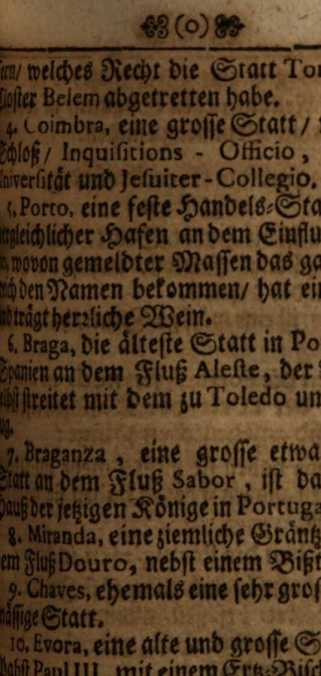 (o)
welches Recht die Statt To
Belem abgetretten habe.
4. Coimbra, eine grosse Statt /
Schloß / Inquisitions - Officio ,
Universität und Jesuiter-Collegio.
5. Porto, eine feste Handels-Sta
gleichlicher Hafen an dem Einflu
wovon gemeldter Massen das ga
den Namen bekommen / hat ei
trägt herzliche Wein.
6. Braga, die älteste Statt in Po
Spanien an dem Fluß Aleste, der
streitet mit dem zu Toledo un
7. Braganza , eine grosse etwa
Statt an dem Fluß Sabor , ist da
Hauß der jetzigen Könige in Portuga
8. Miranda, eine ziemliche Gräntz
em Fluß Douro, nebst einem Bißt
9. Chaves, ehemals eine sehr gros
mässige Statt.
10. Evora, eine alte und grosse S
Pabst Paul III. mit einem Ertz-Bisch